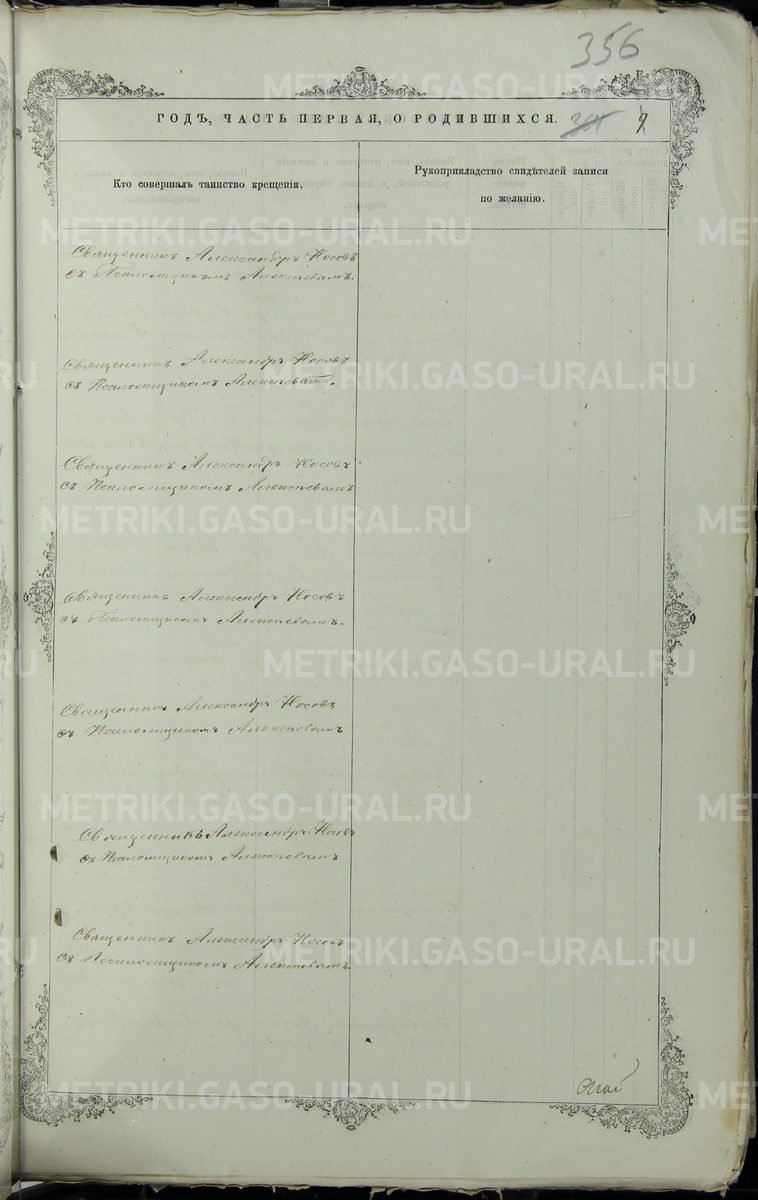 356
ГОДЪ, ЧАСТЬ ПЕРВАЯ, О РОДИВШИХСЯ. 9
Кто совершалъ таинство крещенія.
Рукоприкладство свидѣтелей записи
по желанію.
Священникъ Александръ Носовъ
съ Псаломщикомъ Алексѣевымъ.
Священникъ Александръ Носовъ
съ Псаломщикомъ Алексѣевымъ.
Священникъ Александръ Носовъ
съ Псаломщикомъ Алексѣевымъ
Священникъ Александръ Носовъ
съ Псаломщикомъ Алексѣевымъ.
Священникъ Александръ Носовъ
съ Псаломщикомъ Алексѣевымъ
Священникъ Александръ Носовъ
съ Псаломщикомъ Алексѣевымъ
Священникъ Александръ Носовъ
съ Псаломщикомъ Алексѣевымъ.
METRIKI.GASO-URAL.RU